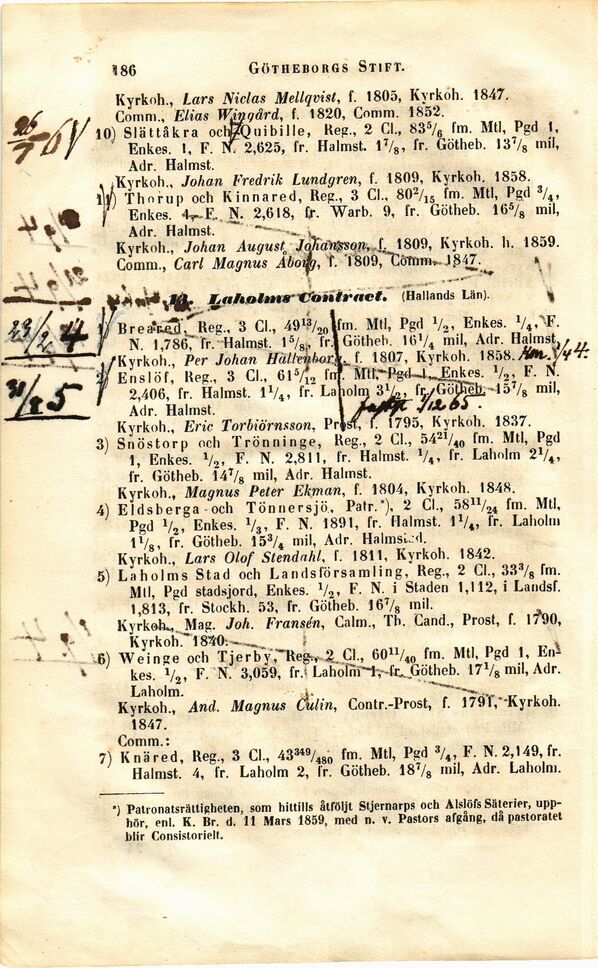 186 GÖTHEBORGS STIFT.
Kyrkoh., Lars Niclas Mellqvist, f. 1805, Kyrkoh. 1847.
Comm., Elias Wingård, f. 1820, Comm. 1852.
10) Slättåkra och Quibille, Reg., 2 Cl., 83⁵/₆ fm. Mtl, Pgd 1,
Enkes. 1, F. N. 2,625, fr. Halmst. 1⁷/₈, fr. Götheb. 13⁷/₈ mil,
Adr. Halmst.
Kyrkoh., Johan Fredrik Lundgren, f. 1809, Kyrkoh. 1858.
11) Thorup och Kinnared, Reg., 3 Cl., 80²/₁₅ fm. Mtl, Pgd ³/₄,
Enkes. 1, F. N. 2,618, fr. Warb. 9, fr. Götheb. 16⁵/₈ mil,
Adr. Halmst.
Kyrkoh., Johan August Johansson, f. 1809, Kyrkoh. h. 1859.
Comm., Carl Magnus Åborg, f. 1809, Comm. 1847.
Laholms Contract. (Hallands Län).
1) Breared, Reg., 3 Cl., 49¹³/₂₀ fm. Mtl, Pgd ¹/₂, Enkes. ¹/₄, F.
N. 1,786, fr. Halmst. 1⁵/₈, fr. Götheb. 16¹/₄ mil, Adr. Halmst.
Kyrkoh., Per Johan Hallenborg, f. 1807, Kyrkoh. 1858.
2) Enslöf, Reg., 3 Cl., 61⁵/₁₂ fm. Mtl, Pgd 1, Enkes. ¹/₂, F. N.
2,406, fr. Halmst. 1¹/₄, fr. Laholm 3¹/₂, fr. Götheb. 15⁷/₈ mil,
Adr. Halmst.
Kyrkoh., Eric Torbiörnsson, Prost, f. 1795, Kyrkoh. 1837.
3) Snöstorp och Trönninge, Reg., 2 Cl., 54²¹/₄₀ fm. Mtl, Pgd
1, Enkes. ¹/₂, F. N. 2,811, fr. Halmst. ¹/₄, fr. Laholm 2¹/₄,
fr. Götheb. 14⁷/₈ mil, Adr. Halmst.
Kyrkoh., Magnus Peter Ekman, f. 1804, Kyrkoh. 1848.
4) Eldsberga och Tönnersjö, Patr.*), 2 Cl., 58¹¹/₂₄ fm. Mtl,
Pgd ¹/₂, Enkes. ¹/₃, F. N. 1891, fr. Halmst. 1¹/₄, fr. Laholm
1¹/₈, fr. Götheb. 15³/₄ mil, Adr. Halmstad.
Kyrkoh., Lars Olof Stendahl, f. 1811, Kyrkoh. 1842.
5) Laholms Stad och Landsförsamling, Reg., 2 Cl., 33³/₈ fm.
Mtl, Pgd stadsjord, Enkes. ¹/₂, F. N. i Staden 1,112, i Landsf.
1,813, fr. Stockh. 53, fr. Götheb. 16⁷/₈ mil.
Kyrkoh., Mag. Joh. Fransén, Calm., Th. Cand., Prost, f. 1790,
Kyrkoh. 1840.
6) Weinge och Tjerby, Reg., 2 Cl., 60¹¹/₄₀ fm. Mtl, Pgd 1, En-
kes. ¹/₂, F. N. 3,059, fr. Laholm 1, fr. Götheb. 17¹/₈ mil, Adr.
Laholm.
Kyrkoh., And. Magnus Culin, Contr.-Prost, f. 1791, Kyrkoh.
1847.
Comm.:
7) Knäred, Reg., 3 Cl., 43³⁴⁹/₄₈₀ fm. Mtl, Pgd ³/₄, F. N. 2,149, fr.
Halmst. 4, fr. Laholm 2, fr. Götheb. 18⁷/₈ mil, Adr. Laholm.
*) Patronatsrättigheten, som hittills åtföljt Stjernarps och Alslöfs Säterier, upp-
hör, enl. K. Br. d. 11 Mars 1859, med n. v. Pastors afgång, då pastoratet
blir Consistorielt.